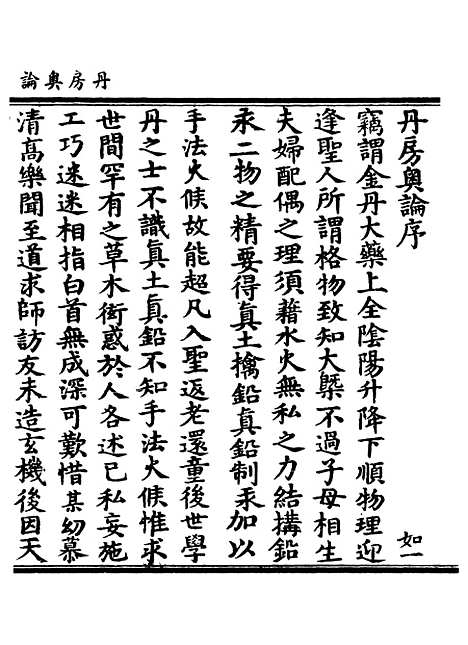 丹房奥論
丹房奥論序　如一
竊謂金丹大藥上全陰陽升降下順物理迎
逢聖人所謂格物致知大槩不過子母相生
夫婦配偶之理須藉水火無私之力結搆鉛
汞二物之精要得眞土擒鉛眞鉛制汞加以
手法火候故能超凡入聖返老還童後世學
丹之士不識眞土眞鉛不知手法火候惟求
世間罕有之草木衒惑於人各述己私妄施
工巧迷迷相指白首無成深可歎惜某幼慕
清高樂聞至道求師訪友未造玄機後因天